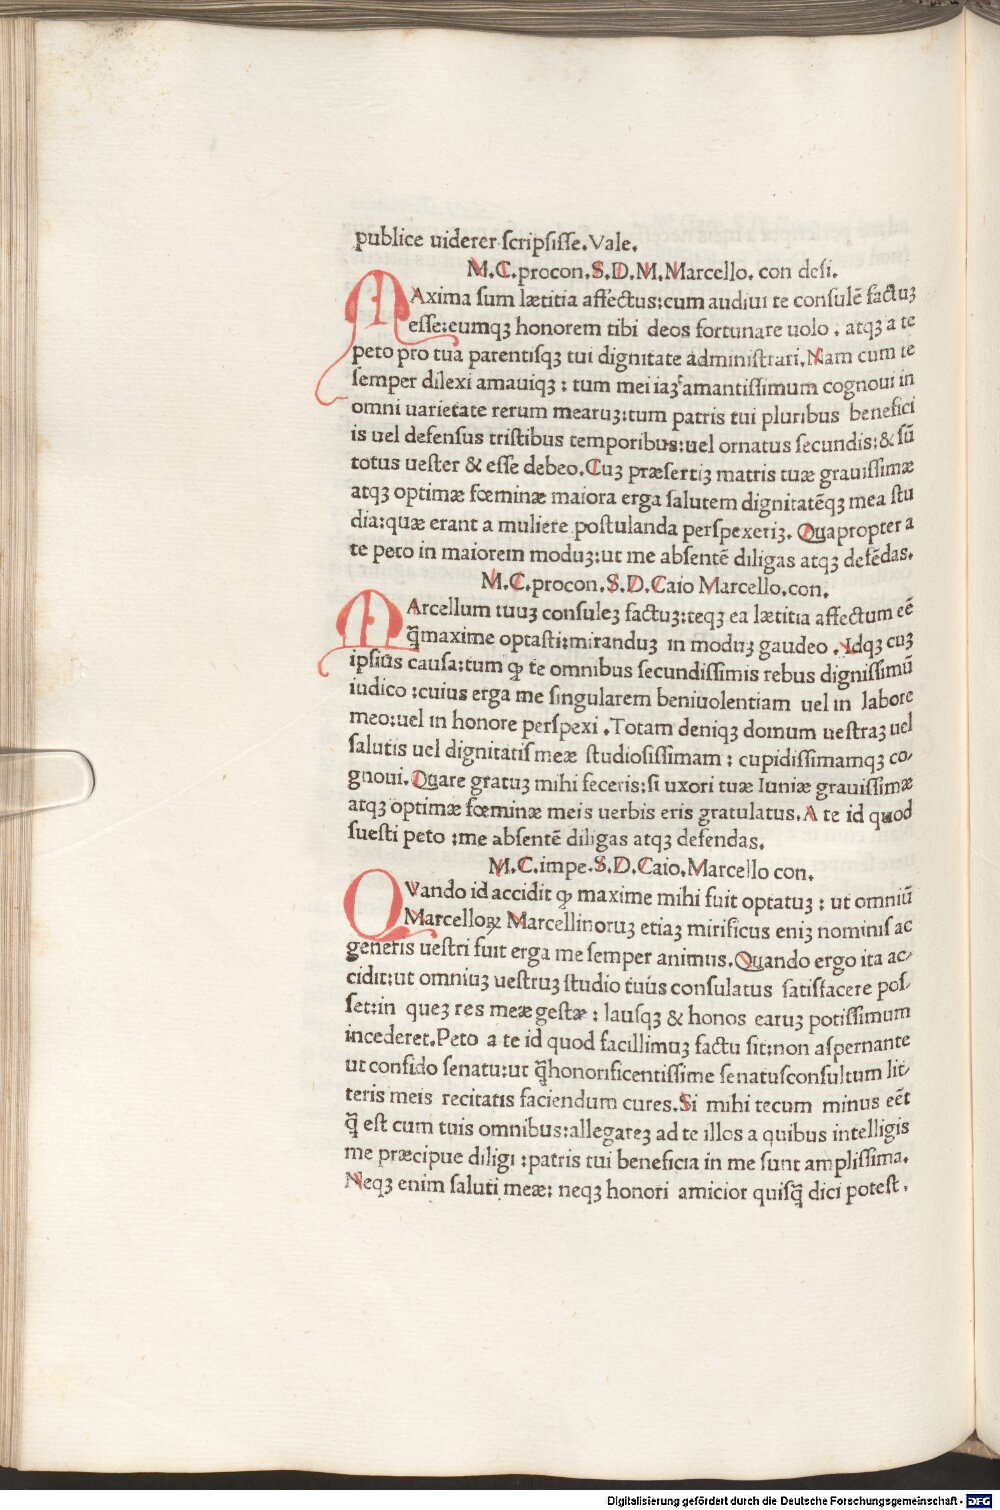 publice uiderer scripsisse. Vale.
M. C. procon. S. D. M. Marcello. con desi.
MAxima sum lætitia affectus: cum audiui te consulē factuꝫ
esse: eumqꝫ honorem tibi deos fortunare uolo. atqꝫ a te
peto pro tua parentisqꝫ tui dignitate administrari. Nam cum te
semper dilexi amauiqꝫ: tum mei iaꝫ amantissimum cognoui in
omni uarietate rerum mearuꝫ: tum patris tui pluribus benefici
is uel defensus tristibus temporibus: uel ornatus secundis: & sū
totus uester & esse debeo. Cuꝫ præsertiꝫ matris tuæ grauissimæ
atqꝫ optimæ fœminæ maiora erga salutem dignitatēqꝫ mea stu
dia: quæ erant a muliere postulanda perspexeriꝫ. Quapropter a
te peto in maiorem moduꝫ: ut me absentē diligas atqꝫ defēdas.
M. C. procon. S. D. Caio Marcello. con.
MArcellum tuuꝫ consuleꝫ factuꝫ: teqꝫ ea lætitia affectum eē
q̄ maxime optasti: miranduꝫ in moduꝫ gaudeo. Idqꝫ cuꝫ
ipsius causa: tum ꝙ te omnibus secundissimis rebus dignissimū
iudico: cuius erga me singularem beniuolentiam uel in labore
meo: uel in honore perspexi. Totam deniqꝫ domum uestraꝫ uel
salutis uel dignitatis meæ studiosissimam: cupidissimamqꝫ co-
gnoui. Quare gratuꝫ mihi feceris: si uxori tuæ Iuniæ grauissimæ
atqꝫ optimæ fœminæ meis uerbis eris gratulatus. A te id quod
suesti peto: me absentē diligas atqꝫ defendas.
M. C. impe. S. D. Caio. Marcello con.
QVando id accidit ꝙ maxime mihi fuit optatuꝫ: ut omniū
Marcelloꝝ Marcellinoruꝫ etiaꝫ mirificus eniꝫ nominis ac
generis uestri fuit erga me semper animus. Quando ergo ita ac-
cidit: ut omniuꝫ uestruꝫ studio tuus consulatus satisfacere pos-
set: in queꝫ res meæ gestæ: lausqꝫ & honos earuꝫ potissimum
incederet. Peto a te id quod facillimuꝫ factu sit: non aspernante
ut confido senatu: ut q̄ honorificentissime senatusconsultum lit-
teris meis recitatis faciendum cures. Si mihi tecum minus eēt
q̄ est cum tuis omnibus: allegareꝫ ad te illos a quibus intelligis
me præcipue diligi: patris tui beneficia in me sunt amplissima.
Neqꝫ enim saluti meæ: neqꝫ honori amicior quisq̄ dici potest.
Digitalisierung gefördert durch die Deutsche Forschungsgemeinschaft - DFG